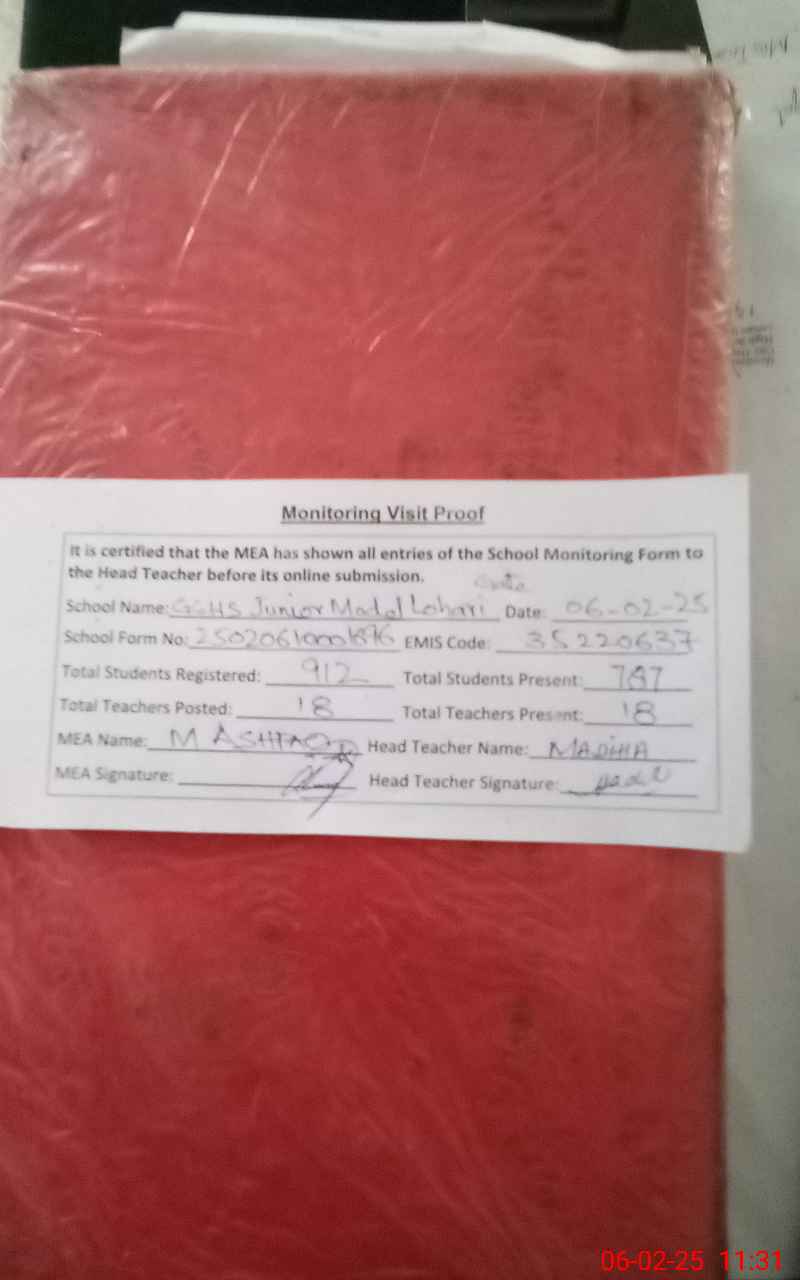 Monitoring Visit Proof
It is certified that the MEA has shown all entries of the School Monitoring Form to
the Head Teacher before its online submission.
School Name: GGHS Junior Model Lohari Gate Date: 06-02-25
School Form No: EMIS Code: 35220637
Total Students Registered: 912 Total Students Present: 787
Total Teachers Posted: 18 Total Teachers Present: 18
MEA Name: M ASHFAQ Head Teacher Name: MADIHA
MEA Signature: Head Teacher Signature:
06-02-25 11:31